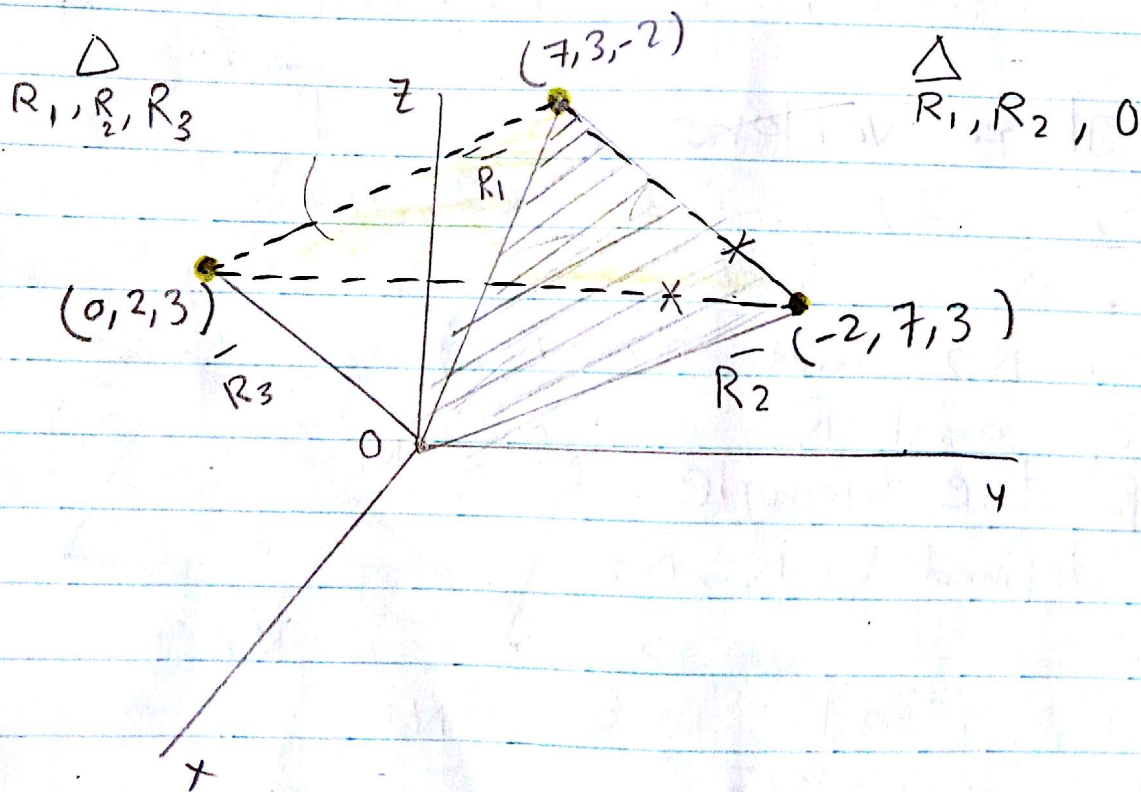 △
R₁, R₂, R₃
(7,3,-2)
△
R₁, R₂, 0
Z
R̄₁
(0,2,3)
R̄₃
(-2,7,3)
R̄₂
0
y
x